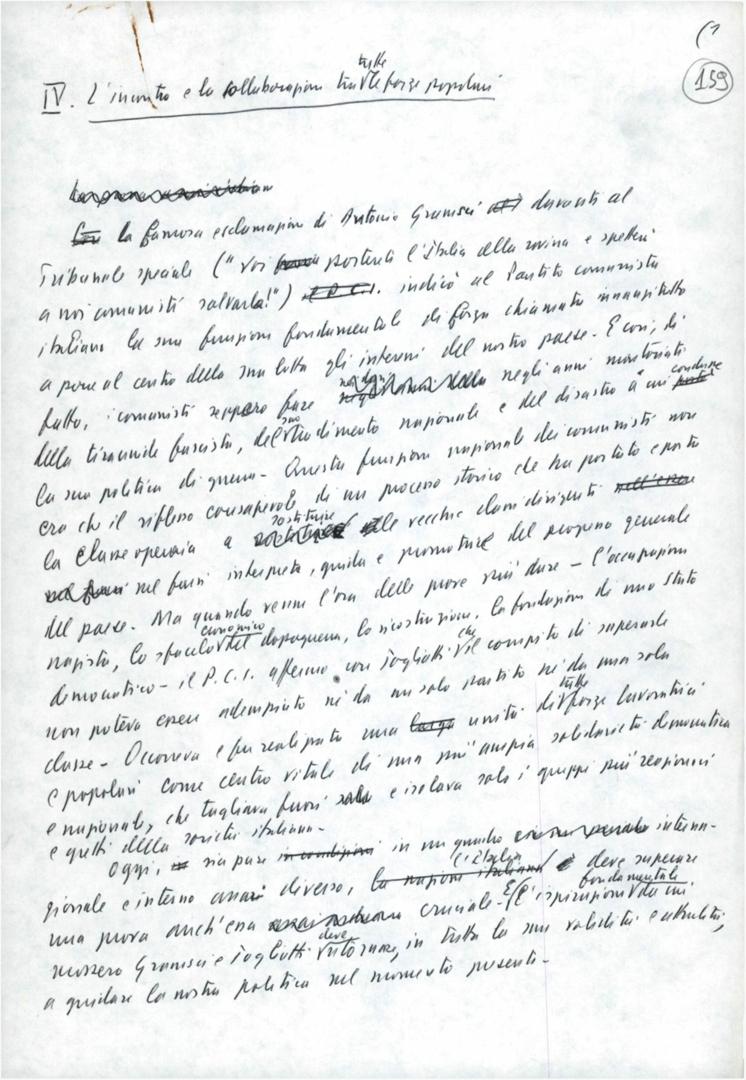 159
IV. L'incontro e la collaborazione tra tutte le forze popolari
La famosa esclamazione di Antonio Gramsci davanti al
Tribunale speciale ("voi porterete l'Italia alla rovina e spetterà
a noi comunisti salvarla!") indicò al Partito comunista
italiano la sua funzione fondamentale di forza chiamata innanzitutto
a porre al centro della sua lotta gli interessi del nostro paese. E così, di
fatto, i comunisti seppero fare negli anni
della tirannide fascista, del suo tradimento nazionale e del disastro a cui condusse
la sua politica di guerra. Questa funzione nazionale dei comunisti non
era che il riflesso consapevole di un processo storico che ha portato e porta
la classe operaia a sostituire le vecchie classi dirigenti
nel farsi interprete, guida e promotrice del progresso generale
del paese. Ma quando venne l'ora delle prove più dure – l'occupazione
nazista, lo sfacelo economico del dopoguerra, la ricostruzione, la fondazione di uno Stato
democratico – il P.C.I. affermò con Togliatti che il compito di superarle
non poteva essere adempiuto né da un solo partito né da una sola
classe. Occorreva e fu realizzata una larga unità di tutte forze lavoratrici
e popolari come centro vitale di una più ampia solidarietà democratica
e nazionale, che tagliava fuori e isolava solo i gruppi più reazionari
e gretti della società italiana.
Oggi, sia pure in condizioni in un quadro interna-
zionale e interno assai diverso, la nazione italiana l'Italia deve superare
una prova anch'essa cruciale. E l'ispirazione fondamentale da cui
mossero Gramsci e Togliatti deve ritornare, in tutta la sua validità e attualità,
a guidare la nostra politica nel momento presente.